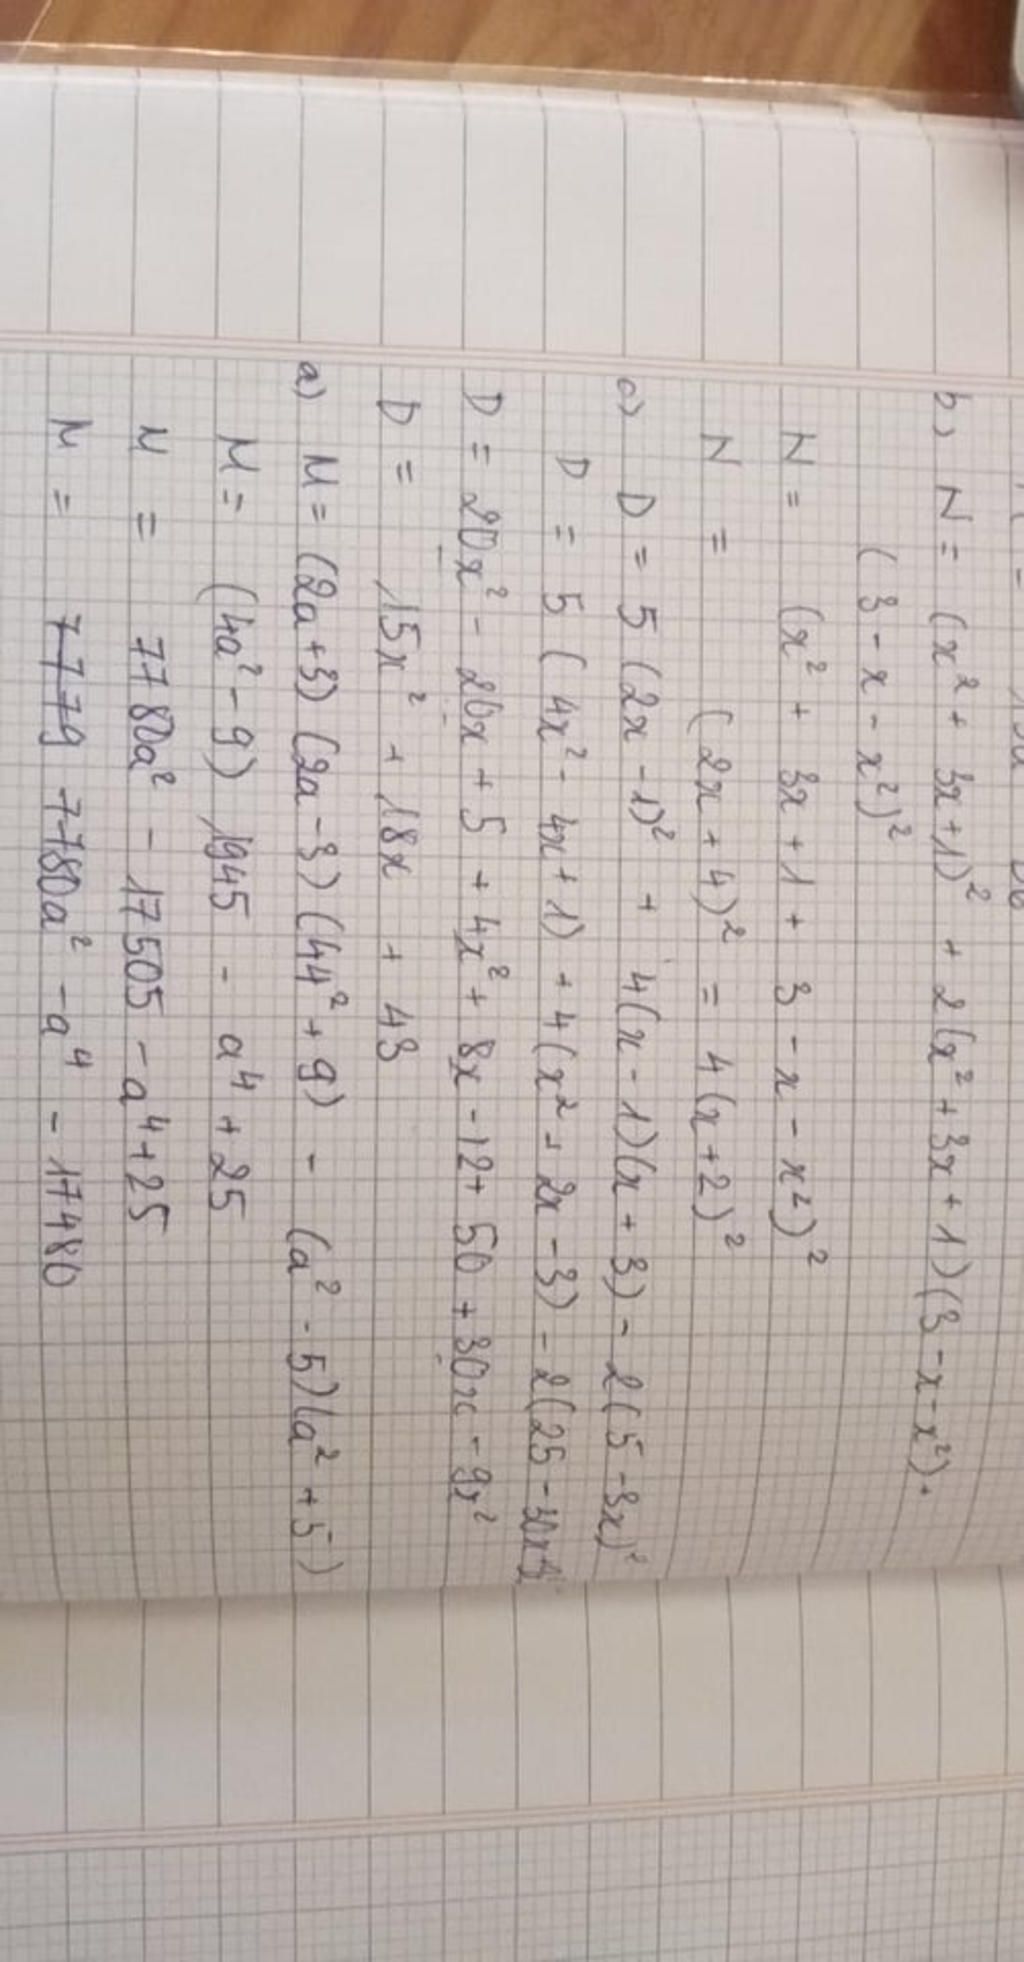 b) N = (x² + 3x + 1)² + 2(x² + 3x + 1)(3 - x - x²) +
(3 - x - x²)²
N = (x² + 3x + 1 + 3 - x - x²)²
N = (2x + 4)² = 4(x + 2)²
c) D = 5(2x - 1)² + 4(x - 1)(x + 3) - 2(5 - 3x)²
D = 5(4x² - 4x + 1) + 4(x² + 2x - 3) - 2(25 - 30x
D = 20x² - 20x + 5 + 4x² + 8x - 12 + 50 + 30x - 9x²
D = 15x² + 18x + 43
a) M = (2a + 3)(2a - 3)(44² + 9) - (a² - 5)(a² + 5)
M = (4a² - 9) 1945 - a⁴ + 25
M = 7780a² - 17505 - a⁴ + 25
M = 7779 7780a² - a⁴ - 17480